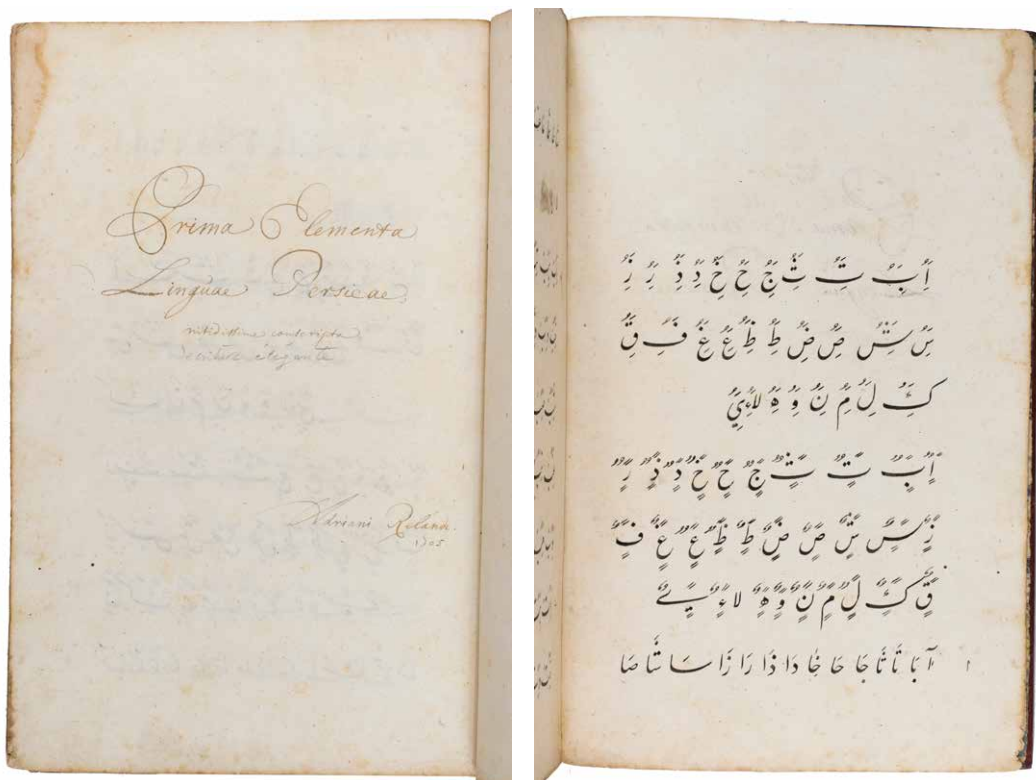 Prima Elementa
Linguae Persicae
nitidissime conscripta
Hadriani Relandi.
1705
اَُِ بَُِ تَُِ ثَُِ جَُِ حَُِ خَُِ دَُِ ذَُِ رَُِ زَُِ
سَُِ شَُِ صَُِ ضَُِ طَُِ ظَُِ عَُِ غَُِ فَُِ قَُِ
كَُِ لَُِ مَُِ نَُِ وَُِ هَُِ لاءَُِ يَُِ
اًٌٍ بًٌٍ تًٌٍ ثًٌٍ جًٌٍ حًٌٍ خًٌٍ دًٌٍ ذًٌٍ رًٌٍ
زًٌٍ سًٌٍ شًٌٍ صًٌٍ ضًٌٍ طًٌٍ ظًٌٍ عًٌٍ غًٌٍ فًٌٍ
قًٌٍ كًٌٍ لًٌٍ مًٌٍ نًٌٍ وًٌٍ هًٌٍ لاءًٌٍ يًٌٍ ے
آ بَا تَا ثَا جَا حَا خَا دَا ذَا رَا زَا سَا شَا صَا